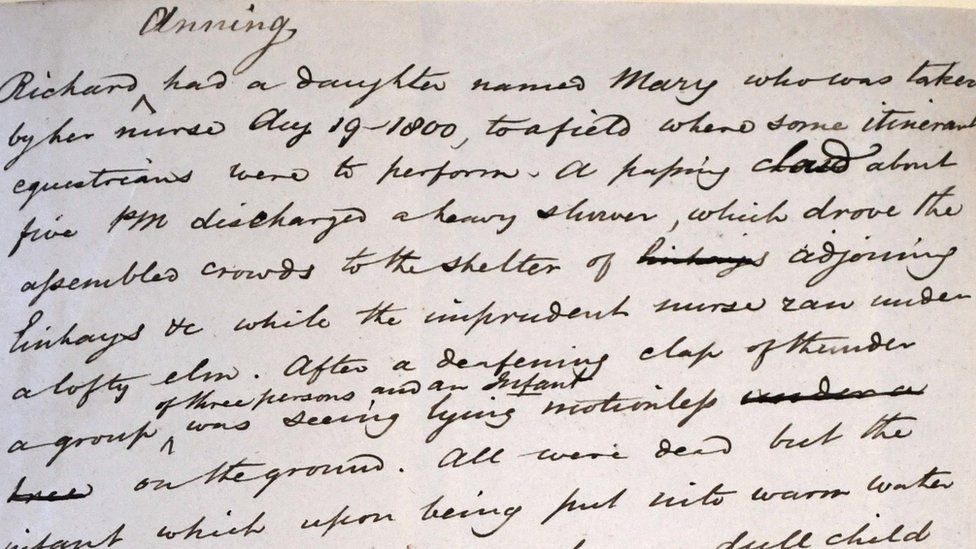 Anning
Richard ^ had a daughter named Mary who was taken
by her nurse Aug 19-1800, to a field where some itinerant
equestrians were to perform. A paſsing cloud about
five PM discharged a heavy shower, which drove the
aſsembled crowds to the shelter of linhays adjoining
linhays &c while the imprudent nurse ran under
a lofty elm. After a deafening clap of thunder
of three persons and an Infant
a group ^ was seeing lying motionleſs under a
tree on the ground. All were dead but the
infant which upon being put into warm water
dull child